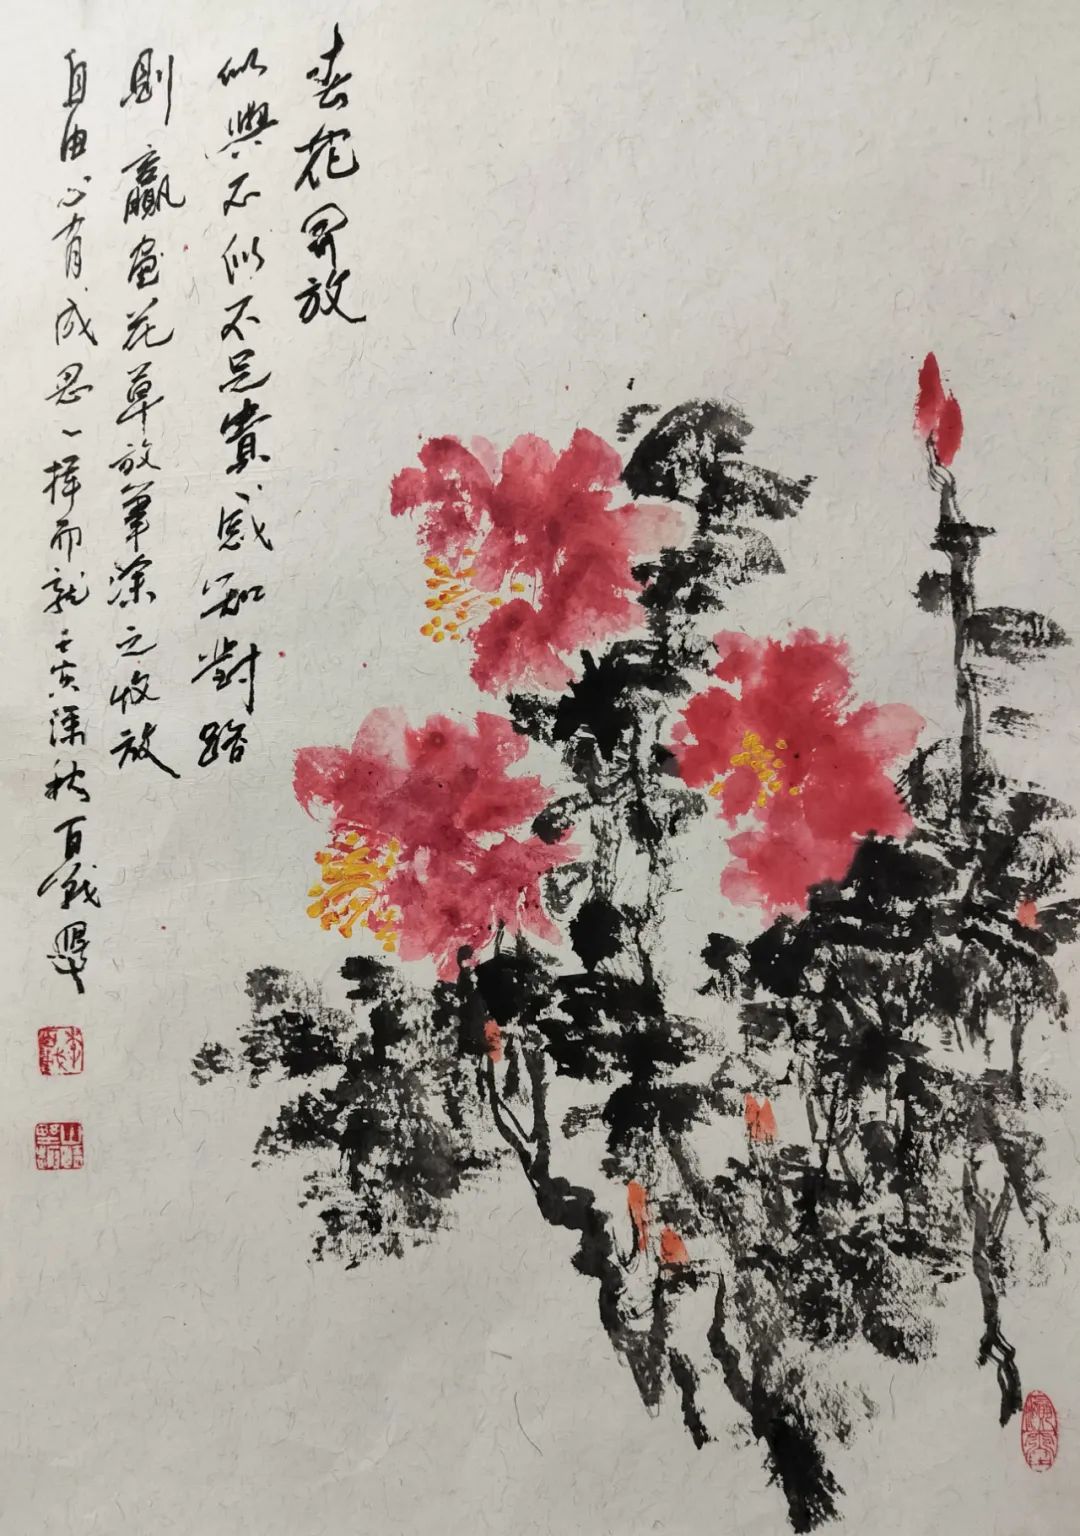 春花開放
似與不似不足貴感知對路
則贏畫花草放筆塗之收放
自由心有成思一揮而就壬寅深秋百戰墨